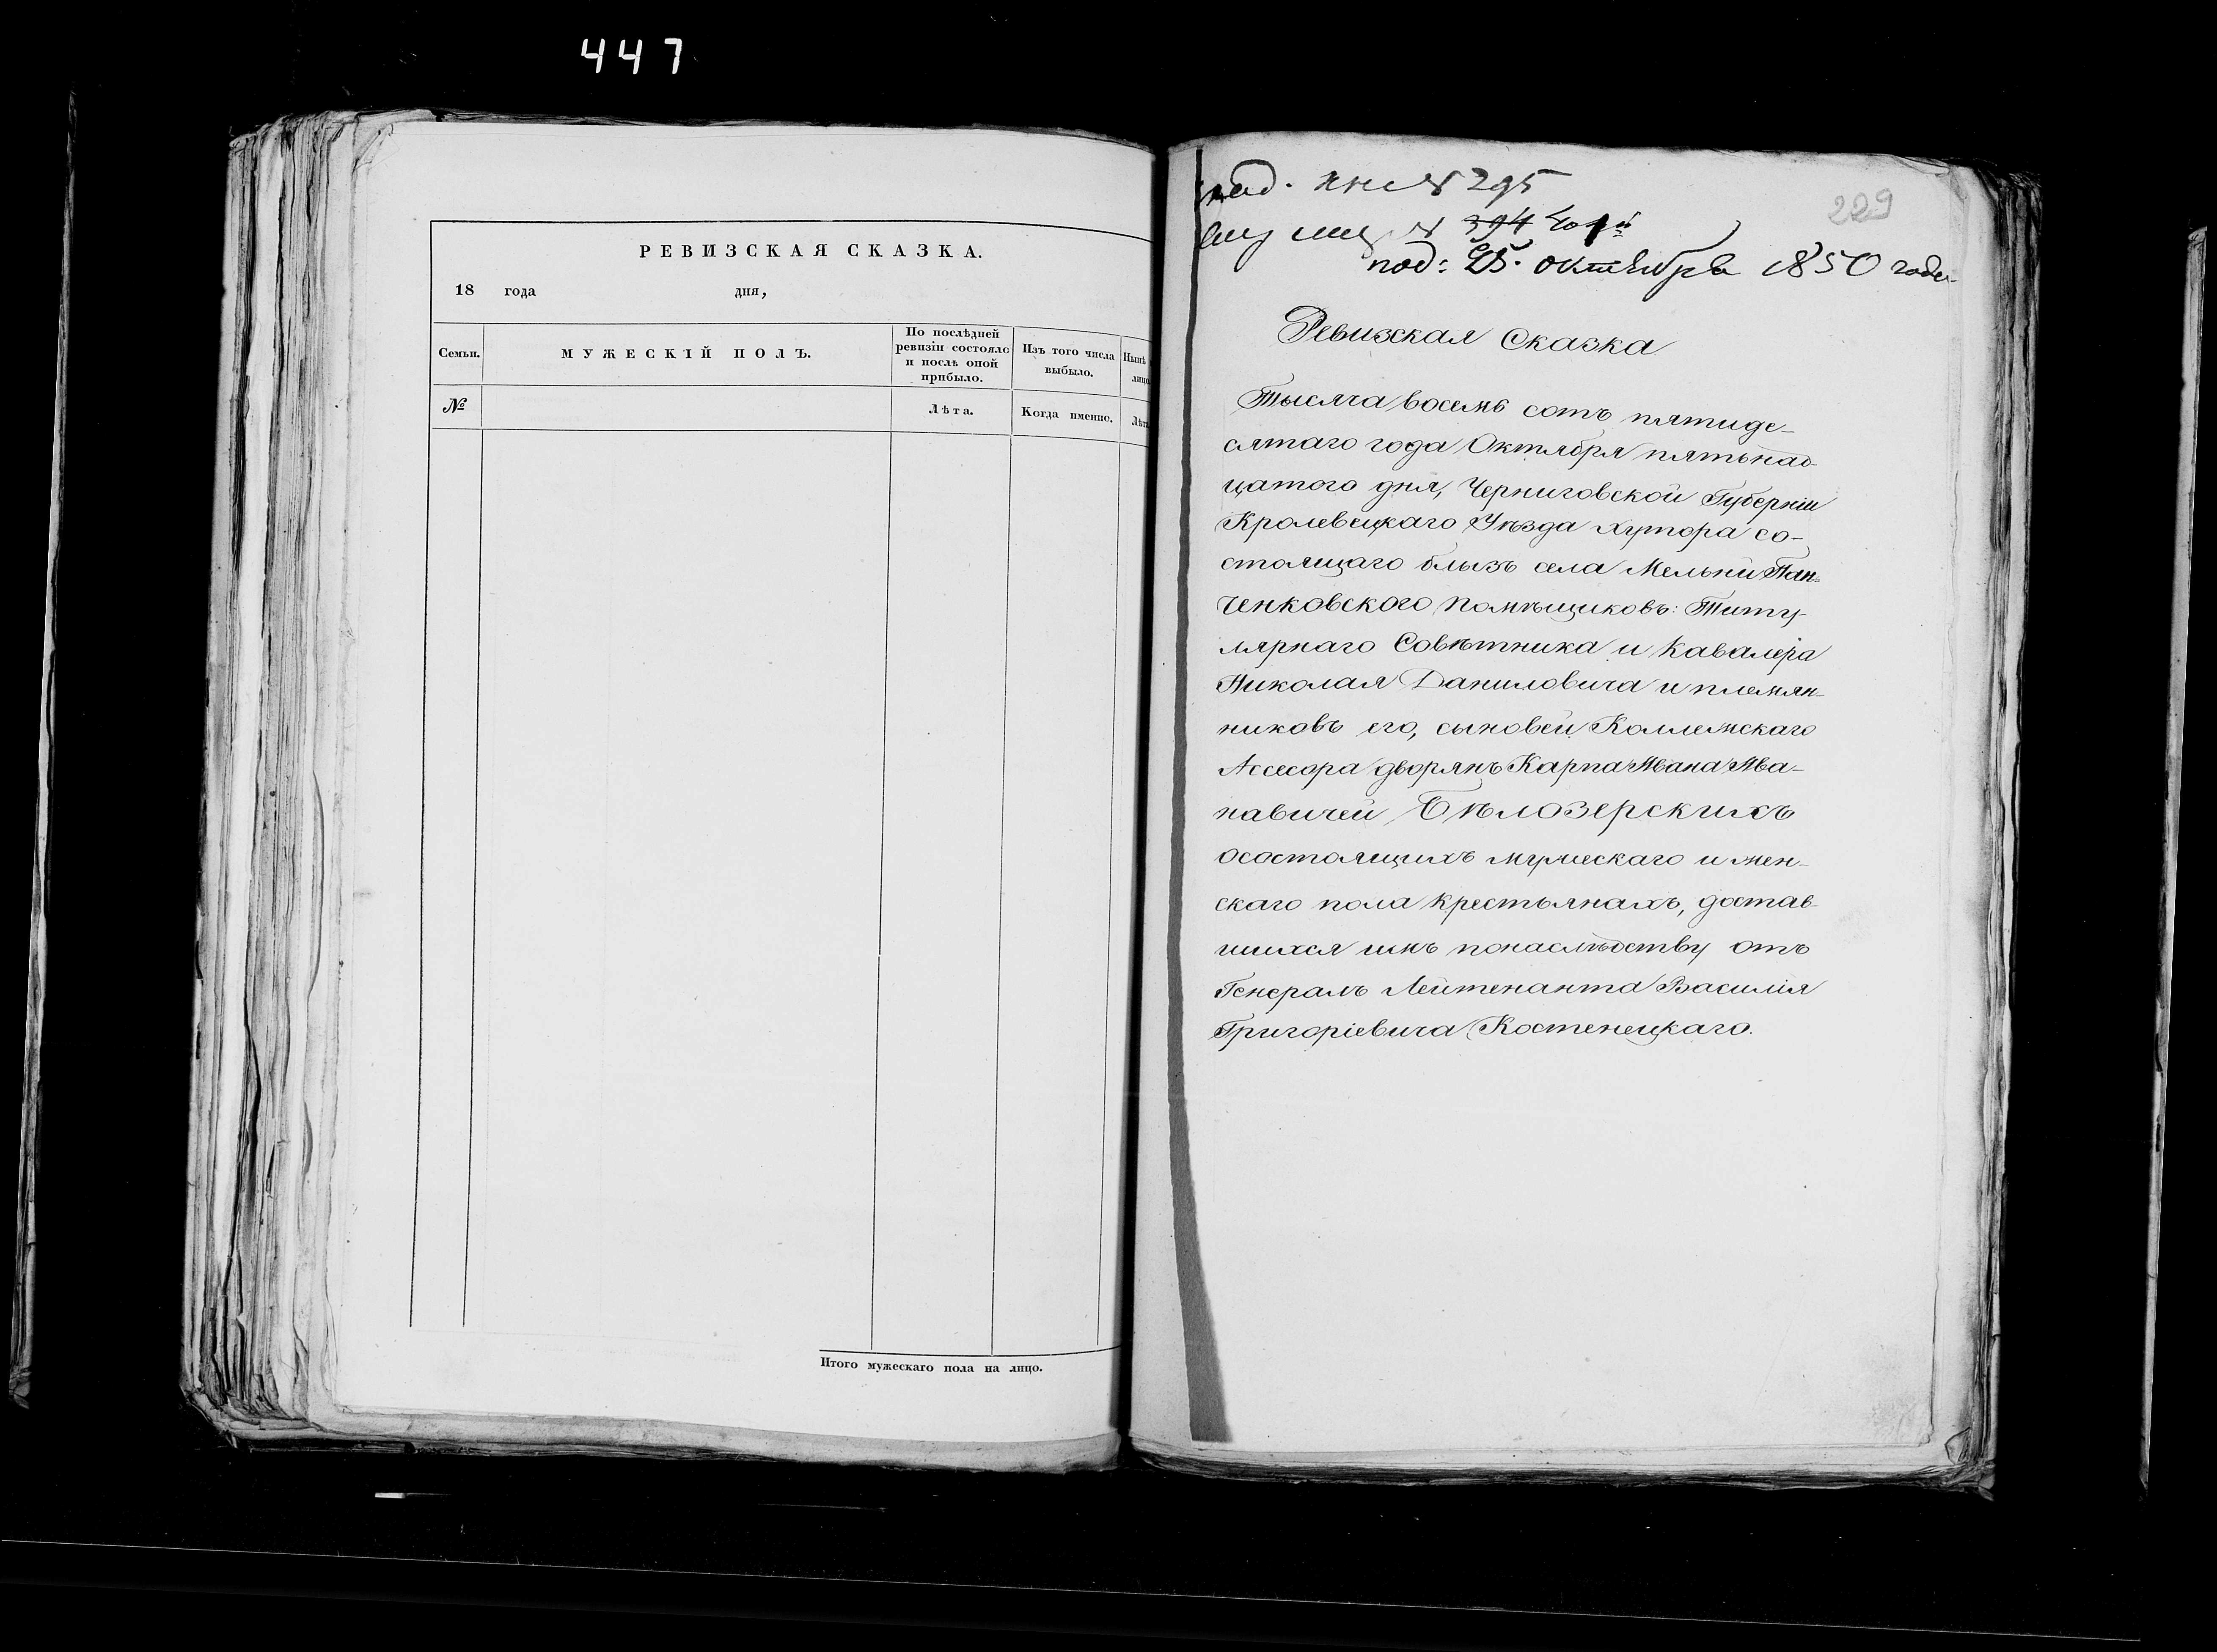 447
РЕВИЗСКАЯ СКАЗКА.
18 года дня,
Семьи.
МУЖЕСКІЙ ПОЛЪ.
По послѣдней
ревизіи состояло
и послѣ оной
прибыло.
Изъ того числа
выбыло.
Нынѣ
лицо
№
Лѣта.
Когда именно.
Лѣт
Итого мужескаго пола на лицо.
№ 295
229
№ 394
под: 25. октября 1850 года
Ревизская Сказка
Тысяча восемь сотъ пятиде-
сятаго года Октября пятьнад-
цатого дня, Черниговской Губерніи
Кролевецкаго Уѣзда хутора со-
стоящаго блызъ села Мельни Пан-
ченковского помѣщиковъ: Титу-
лярнаго Совѣтника и Кавалера
Николая Даниловича и племян-
никовъ его, сыновей Коллежскаго
Ассесора дворянъ Карпа Ивана Ива-
навичей Бѣлозерскихъ
осостоящихъ мужескаго и жен-
скаго пола крестьянахъ, достав-
шихся имъ понаслѣдству отъ
Генералъ Лейтенанта Василія
Григоріевича Костенецкаго.